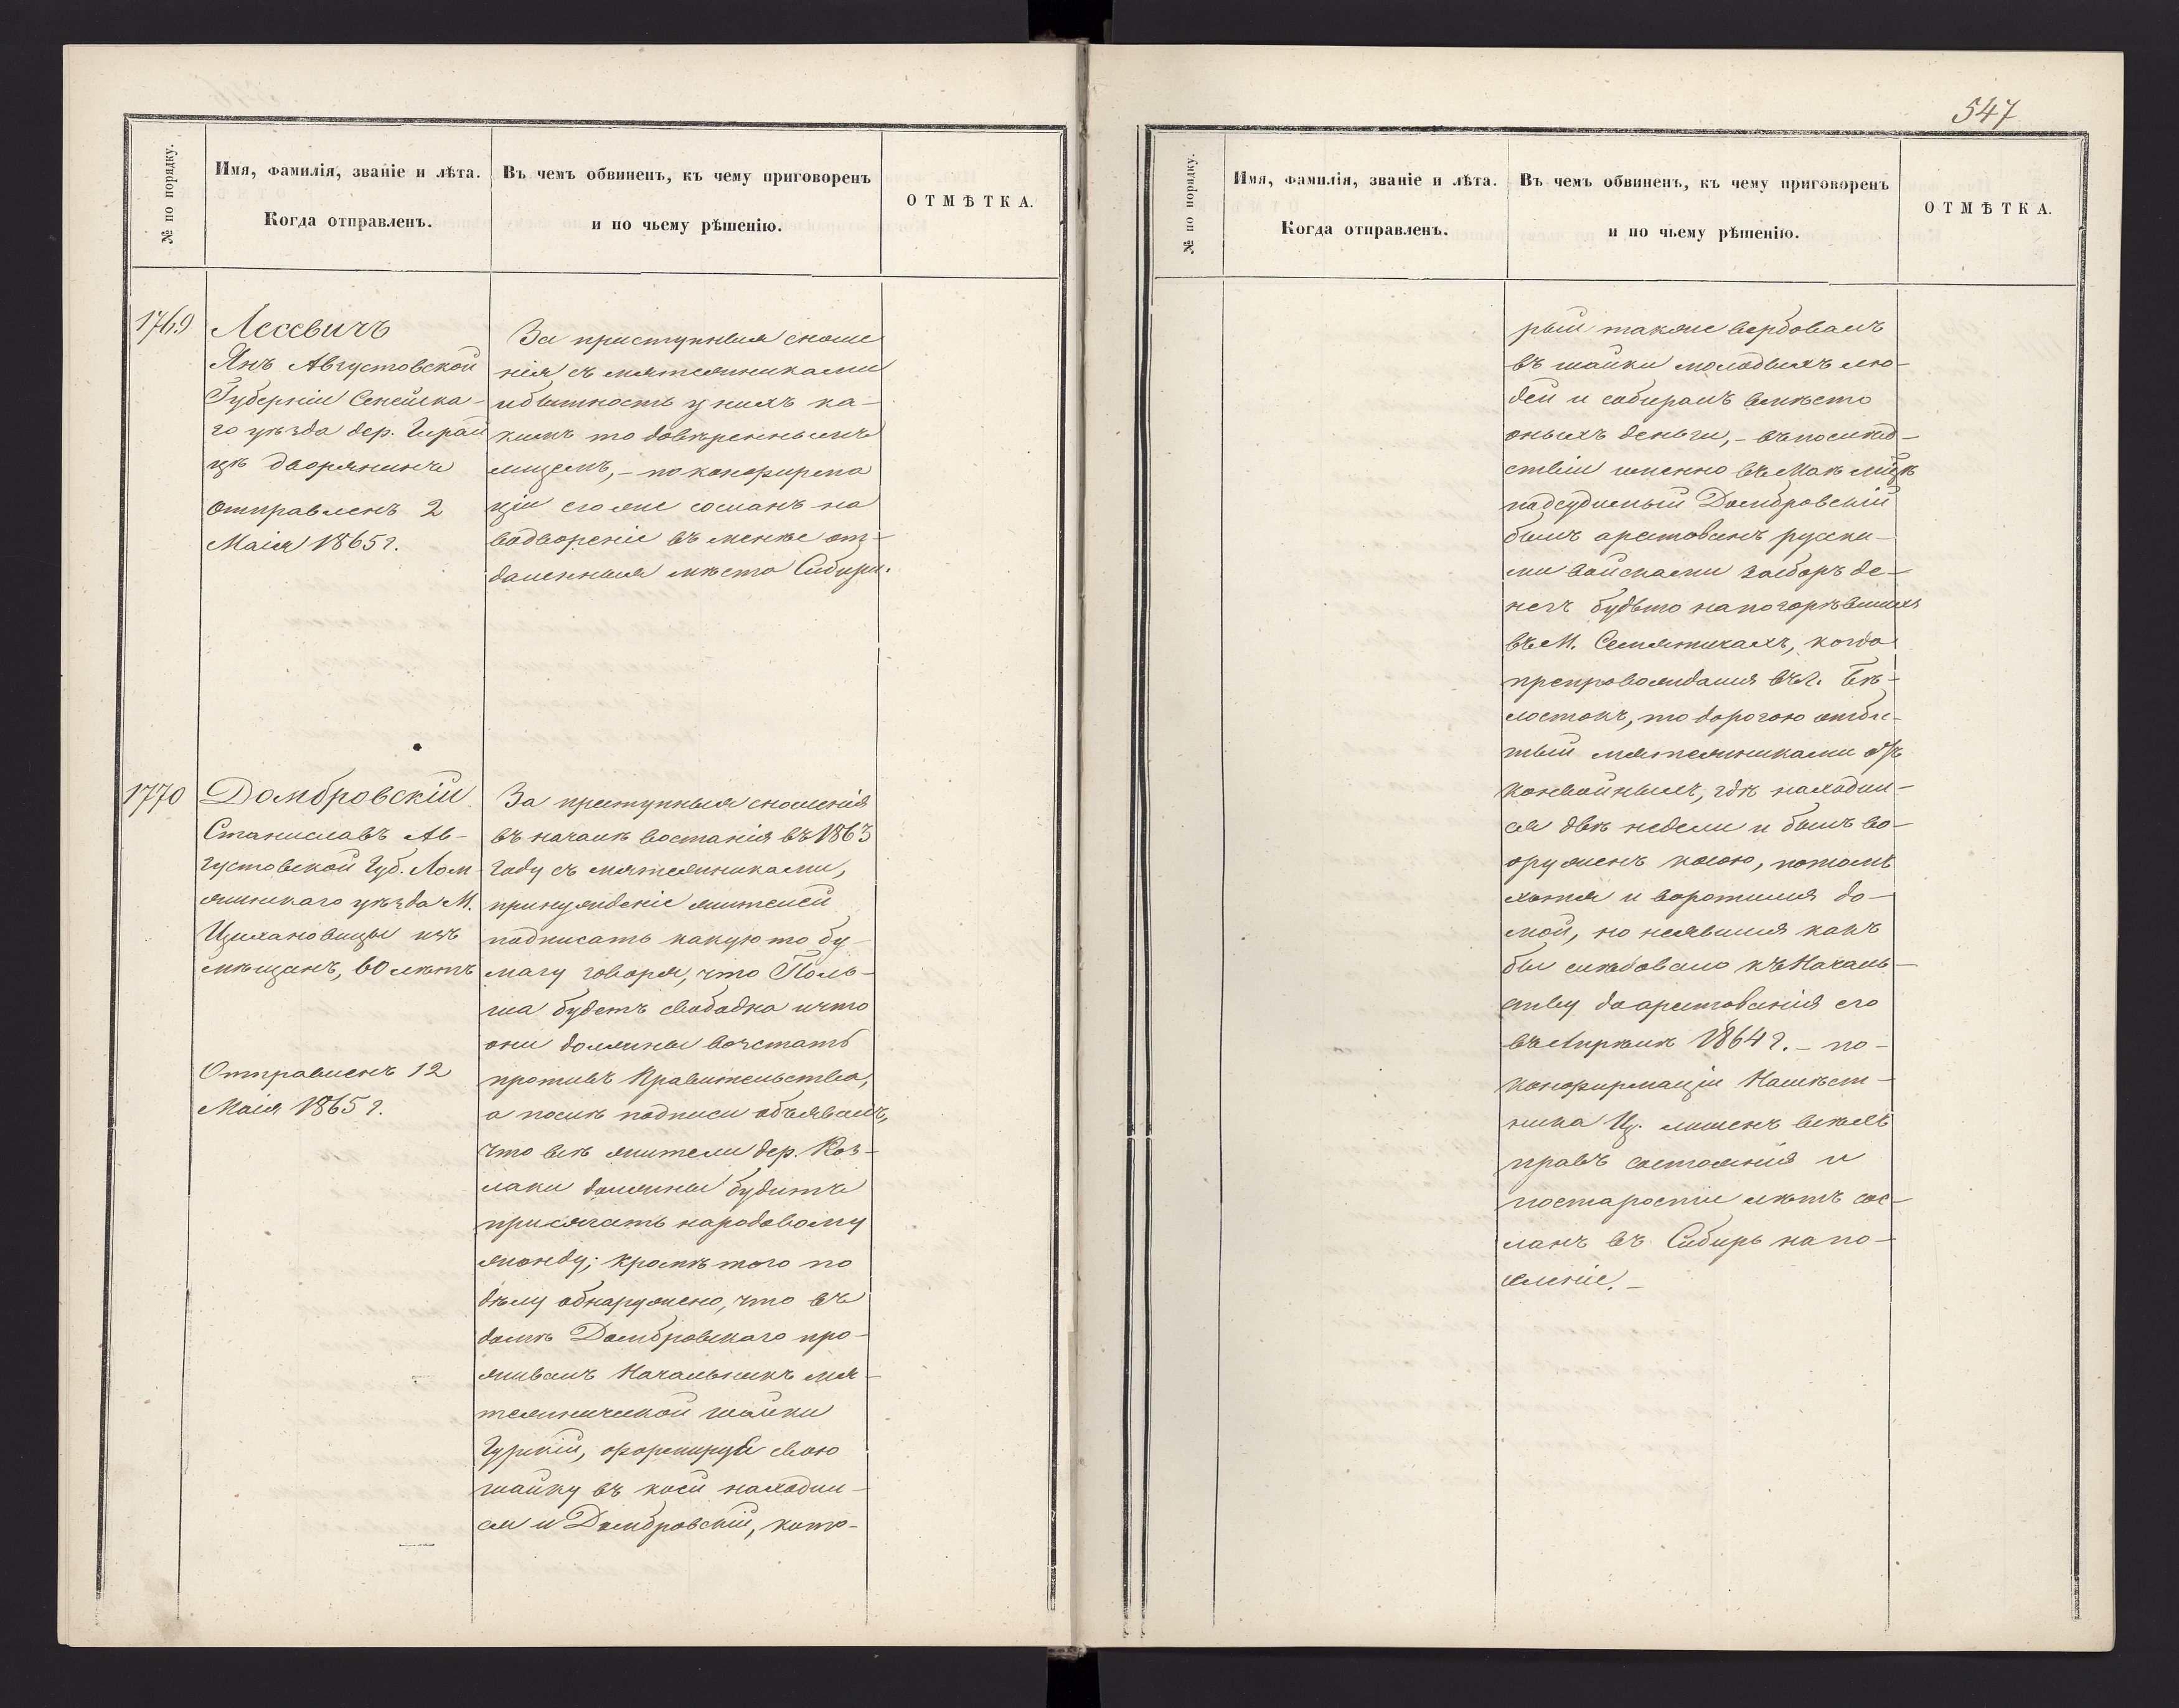 547
№ по порядку.
Имя, фамилія, званіе и лѣта.
Когда отправленъ.
Въ чемъ обвиненъ, къ чему приговоренъ
и по чьему рѣшенію.
ОТМѢТКА.
1769
Лесевичъ
Янъ Августовской
Губерніи Сейска-
го уѣзда дер.
цѣ дворянинъ
отправленъ 2
Маія 1865 г.
За приступныя сноше
нія съ мятежниками
и бытность у нихъ ка-
кимъ то довѣреннымъ
лицемъ, - по конфирма
ціи его же сосланъ на
водвореніе въ менѣе от-
даленныя мѣста Сибири.
1770
Домбровскій
Станиславъ Ав-
густовской Губ. Лом
жинскаго уѣзда М.
Цихановицы изъ
мѣщанъ, 60 лѣтъ
Отправленъ 12
Маія 1865 г.
За преступныя сношенія
въ началѣ востанія въ 1863
году съ мятежниками,
принужденіе жителей
подписать какую то бу-
магу говоря, что Поль-
ша будетъ свободна и что
они должны возстать
противъ Правительства,
а послѣ подписи объявилъ,
что всѣ жители дер. Коз-
лаки должны будутъ
присягать народовому
жонду; кромѣ того по
дѣлу обнаружено, что въ
домѣ Домбровскаго про-
живалъ Начальникъ мя-
тежнической шайки
Гурскій, формируя свою
шайку въ коей находил-
ся и Домбровскій, кото-
№ по порядку.
Имя, фамилія, званіе и лѣта.
Когда отправленъ.
Въ чемъ обвиненъ, къ чему приговоренъ
и по чьему рѣшенію.
ОТМѢТКА.
рый также вербовалъ
въ шайки молодыхъ лю-
дей и собиралъ вмѣсто
оныхъ деньги, - въпослѣд-
ствіи именно въ Маѣ мѣц
подсудимый Домбровскій
былъ арестованъ русски-
ми войсками за сборъ де-
негъ будьто на погорѣвшихъ
въ М. Семятичахъ, когда
препровождался въ г. Бѣ-
лостокъ, то дорогою отби-
тый мятежниками отъ
конвойныхъ, гдѣ находил-
ся двѣ недели и былъ во-
оруженъ косою, потомъ
хотя и воротился до-
мой, но неявился какъ
бы слѣдовало къ Началь-
ству до арестованія его
въ Апрѣлѣ 1864 г. - по-
конфирмаціи Намѣст-
ника Ц. лишенъ всѣхъ
правъ состоянія и
по старости лѣтъ сос-
ланъ въ Сибирь на по-
селеніе. -